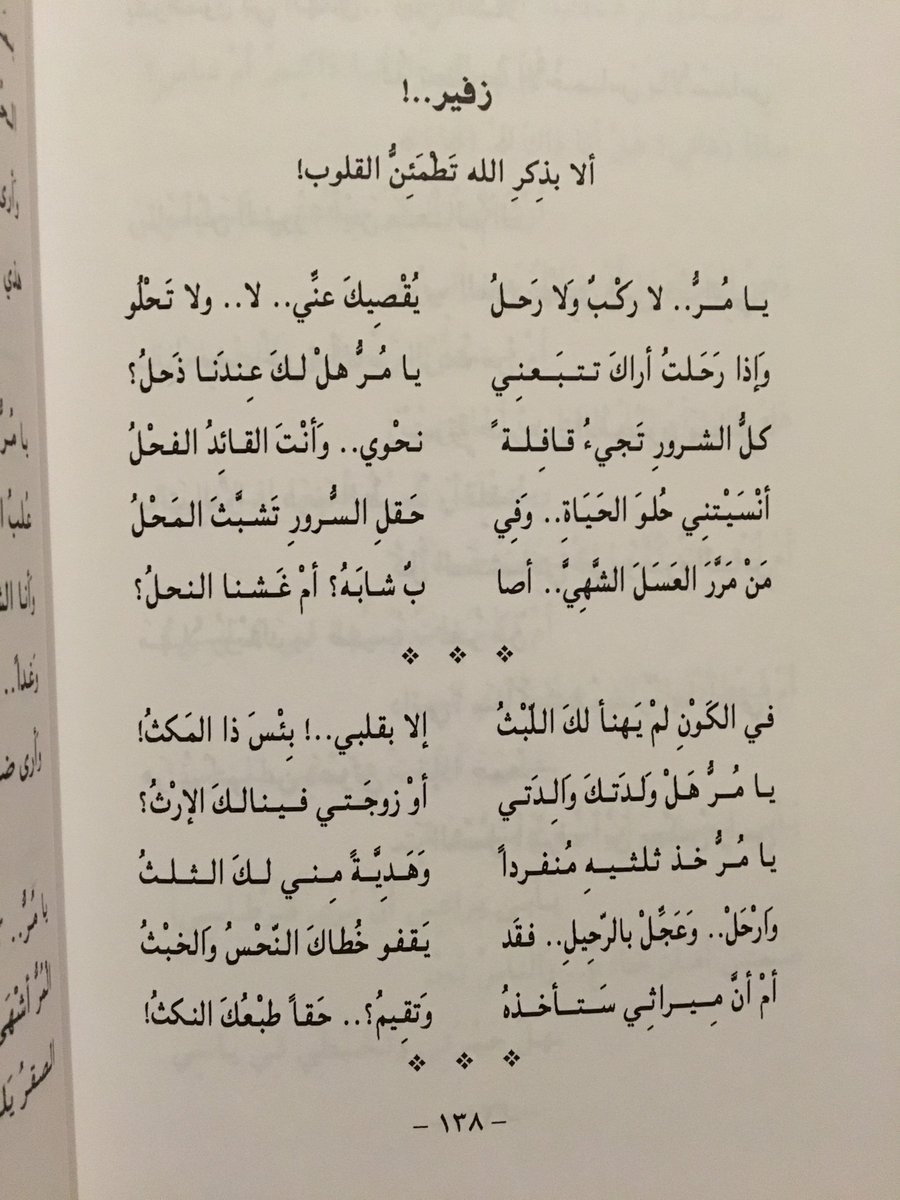 زفير..!
ألا بذِكرِ الله تَطْمَئِنُّ القلوب!
يا مُرُّ.. لا ركْبٌ وَلا رَحلُ يُقْصِيكَ عنِّي.. لا.. ولا تَحْلُو
وَإذا رَحَلتُ أراكَ تتبَعني يا مُرُّ هلْ لكَ عِندَنا ذَحلُ؟
كلُّ الشرورِ تَجيءُ قافِلةً نحْوي.. وَأنْتَ القائِدُ الفحْلُ
أنْسَيْتنِي حُلوَ الحَيَاةِ.. وَفِي حَقلِ السُّرورِ تَشبَّثَ المَحْلُ
مَنْ مَرَّرَ العَسَلَ الشَّهِيَّ.. أصا بٌ شابَهُ؟ أمْ غَشنا النحلُ؟
في الكَوْنِ لمْ يَهنأ لكَ اللّبْثُ إلا بقلبي..! بِئْسَ ذا المَكثُ!
يا مُرُّ هَلْ وَلدَتكَ وَالِدَتي أوْ زوجَتي فينالكَ الإرْثُ؟
يا مُرُّ خذ ثلثيهِ مُنفرداً وَهَدِيَّةً مِني لكَ الثلثُ
وَارْحَلْ.. وَعَجِّلْ بالرّحِيلِ.. فقَد يَقفو خُطاكَ النّحْسُ وَالخبْثُ
أمْ أنَّ مِيراثِي سَتأخذهُ وَتقِيمُ؟.. حَقاً طبْعُكَ النكثُ!
– ١٣٨ –